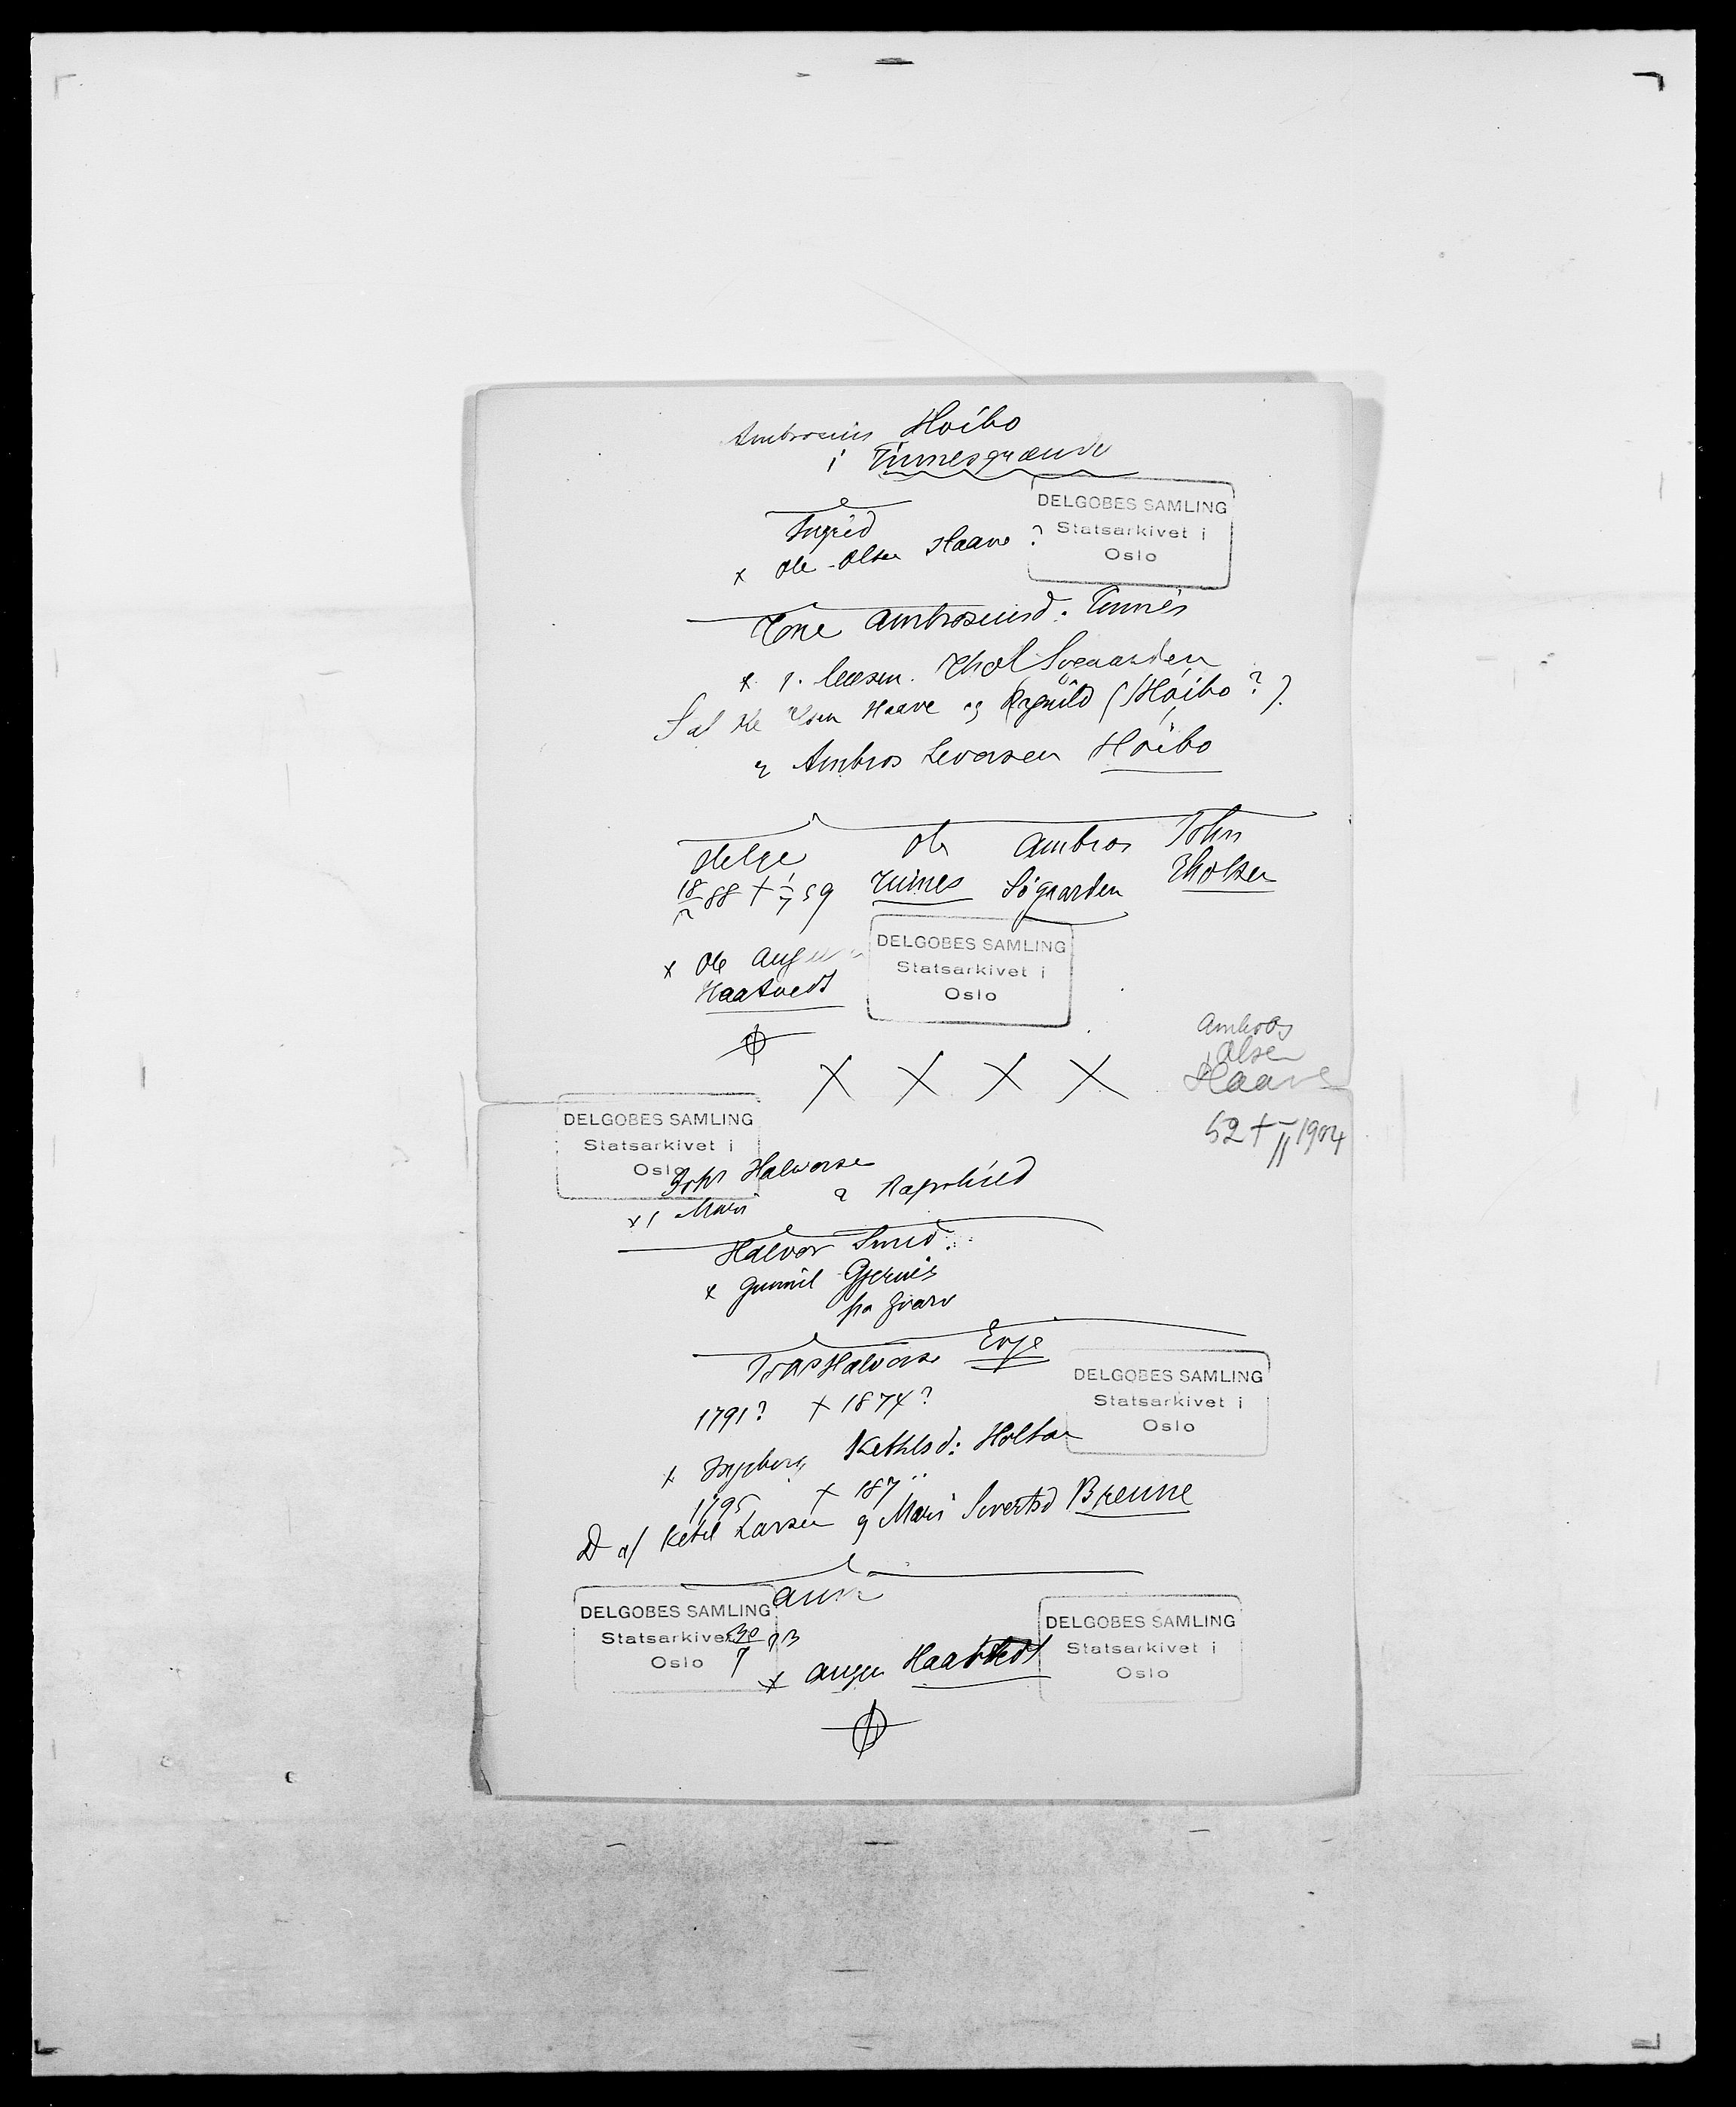 Ambrosius Høibo
i Tinnesgrænde
DELGOBES SAMLING
Statsarkivet i
Oslo
Ingrid
x Ole Olsen Haave ?
Tone Ambrosiusd: Tinnes
x 1. Ehol Søgaarden
S af Ole Olsen Haave og Ragnild (Høibo?).
2 Ambros Levorsen Høibo
Helge Ole Ambros John
18 88 + 59 Tinnes Søgaarden Eholsen
DELGOBES SAMLING
Statsarkivet i
Oslo
x Ole
Haatvedt
Ambros
Olsen
Haave
X X X X
52 + 11 1904
DELGOBES SAMLING
Statsarkivet i
Oslo
John Halvorsen
x 1 Mari 2 Ragnhild
Halvor Smed
x Gunnil Gjernes
fra Gvarv
John Halvorsen Evje
DELGOBES SAMLING
Statsarkivet i
Oslo
1791? + 1874?
x Ingeborg Ketilsd: Holtan
1795 + 187..
D af Ketil Larsen og Mari Sivertsd Brenne
DELGOBES SAMLING
Statsarkivet
Oslo
30
7
x Haatvedt
DELGOBES SAMLING
Statsarkivet i
Oslo